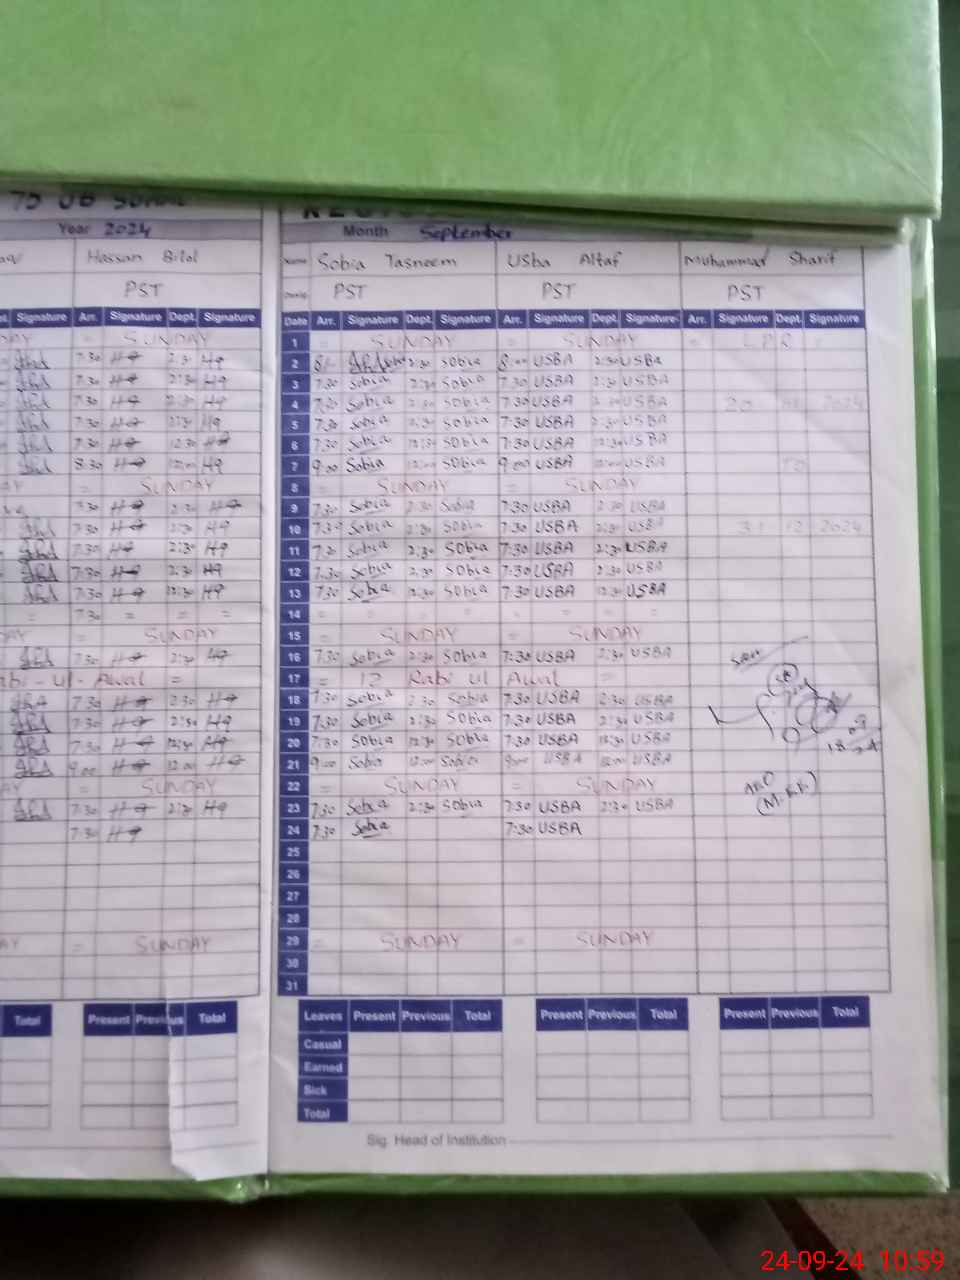 75
Year 2024 Month September
Hassan Bilal Name Sobia Tasneem Usba Altaf Muhammad Sharif
PST PST PST PST
Signature Arr. Signature Dept. Signature Date Arr. Signature Dept. Signature Arr. Signature Dept. Signature Arr. Signature Dept. Signature
= SUNDAY 1 = SUNDAY = SUNDAY = L.P.R =
7:30 2:30 H9 2 2:30 Sobia 8:00 USBA 2:30 USBA
7:30 2:30 H9 3 7:30 Sobia 2:30 Sobia 7:30 USBA 2:30 USBA
7:30 2:30 H9 4 7:30 Sobia 2:30 Sobia 7:30 USBA 2:30 USBA 2024
7:30 2:30 H9 5 7:30 Sobia 2:30 Sobia 7:30 USBA 2:30 USBA
7:30 12:30 H9 6 7:30 Sobia 12:30 Sobia 7:30 USBA 12:30 USBA
8:30 12:00 H9 7 9:00 Sobia 12:00 Sobia 9:00 USBA 12:00 USBA To
= SUNDAY 8 = SUNDAY = SUNDAY
7:30 2:30 H9 9 7:30 Sobia 2:30 Sobia 7:30 USBA 2:30 USBA
7:30 2:30 H9 10 7:30 Sobia 2:30 Sobia 7:30 USBA 2:30 USBA 31 12 2024
7:30 2:30 H9 11 7:30 Sobia 2:30 Sobia 7:30 USBA 2:30 USBA
7:30 2:30 H9 12 7:30 Sobia 2:30 Sobia 7:30 USBA 2:30 USBA
7:30 12:30 H9 13 7:30 Sobia 12:30 Sobia 7:30 USBA 12:30 USBA
= 7:30 = = = 14 = = = = = = = =
= SUNDAY 15 = SUNDAY = SUNDAY
7:30 2:30 H9 16 7:30 Sobia 2:30 Sobia 7:30 USBA 2:30 USBA
Rabi-ul-Awal = 17 = 12 Rabi ul Awal =
7:30 2:30 H9 18 7:30 Sobia 2:30 Sobia 7:30 USBA 2:30 USBA
7:30 2:30 H9 19 7:30 Sobia 2:30 Sobia 7:30 USBA 2:30 USBA
7:30 12:30 H9 20 7:30 Sobia 12:30 Sobia 7:30 USBA 12:30 USBA
9:00 12:00 H9 21 9:00 Sobia 12:00 Sobia 9:00 USBA 12:00 USBA
= SUNDAY 22 = SUNDAY = SUNDAY
7:30 2:30 H9 23 7:30 Sobia 2:30 Sobia 7:30 USBA 2:30 USBA
7:30 H9 24 7:30 Sobia 7:30 USBA
25
26
27
28
= SUNDAY 29 = SUNDAY = SUNDAY
30
31
Total Present Previous Total Leaves Present Previous Total Present Previous Total Present Previous Total
Casual
Earned
Sick
Total
Sig. Head of Institution
24-09-24 10:59